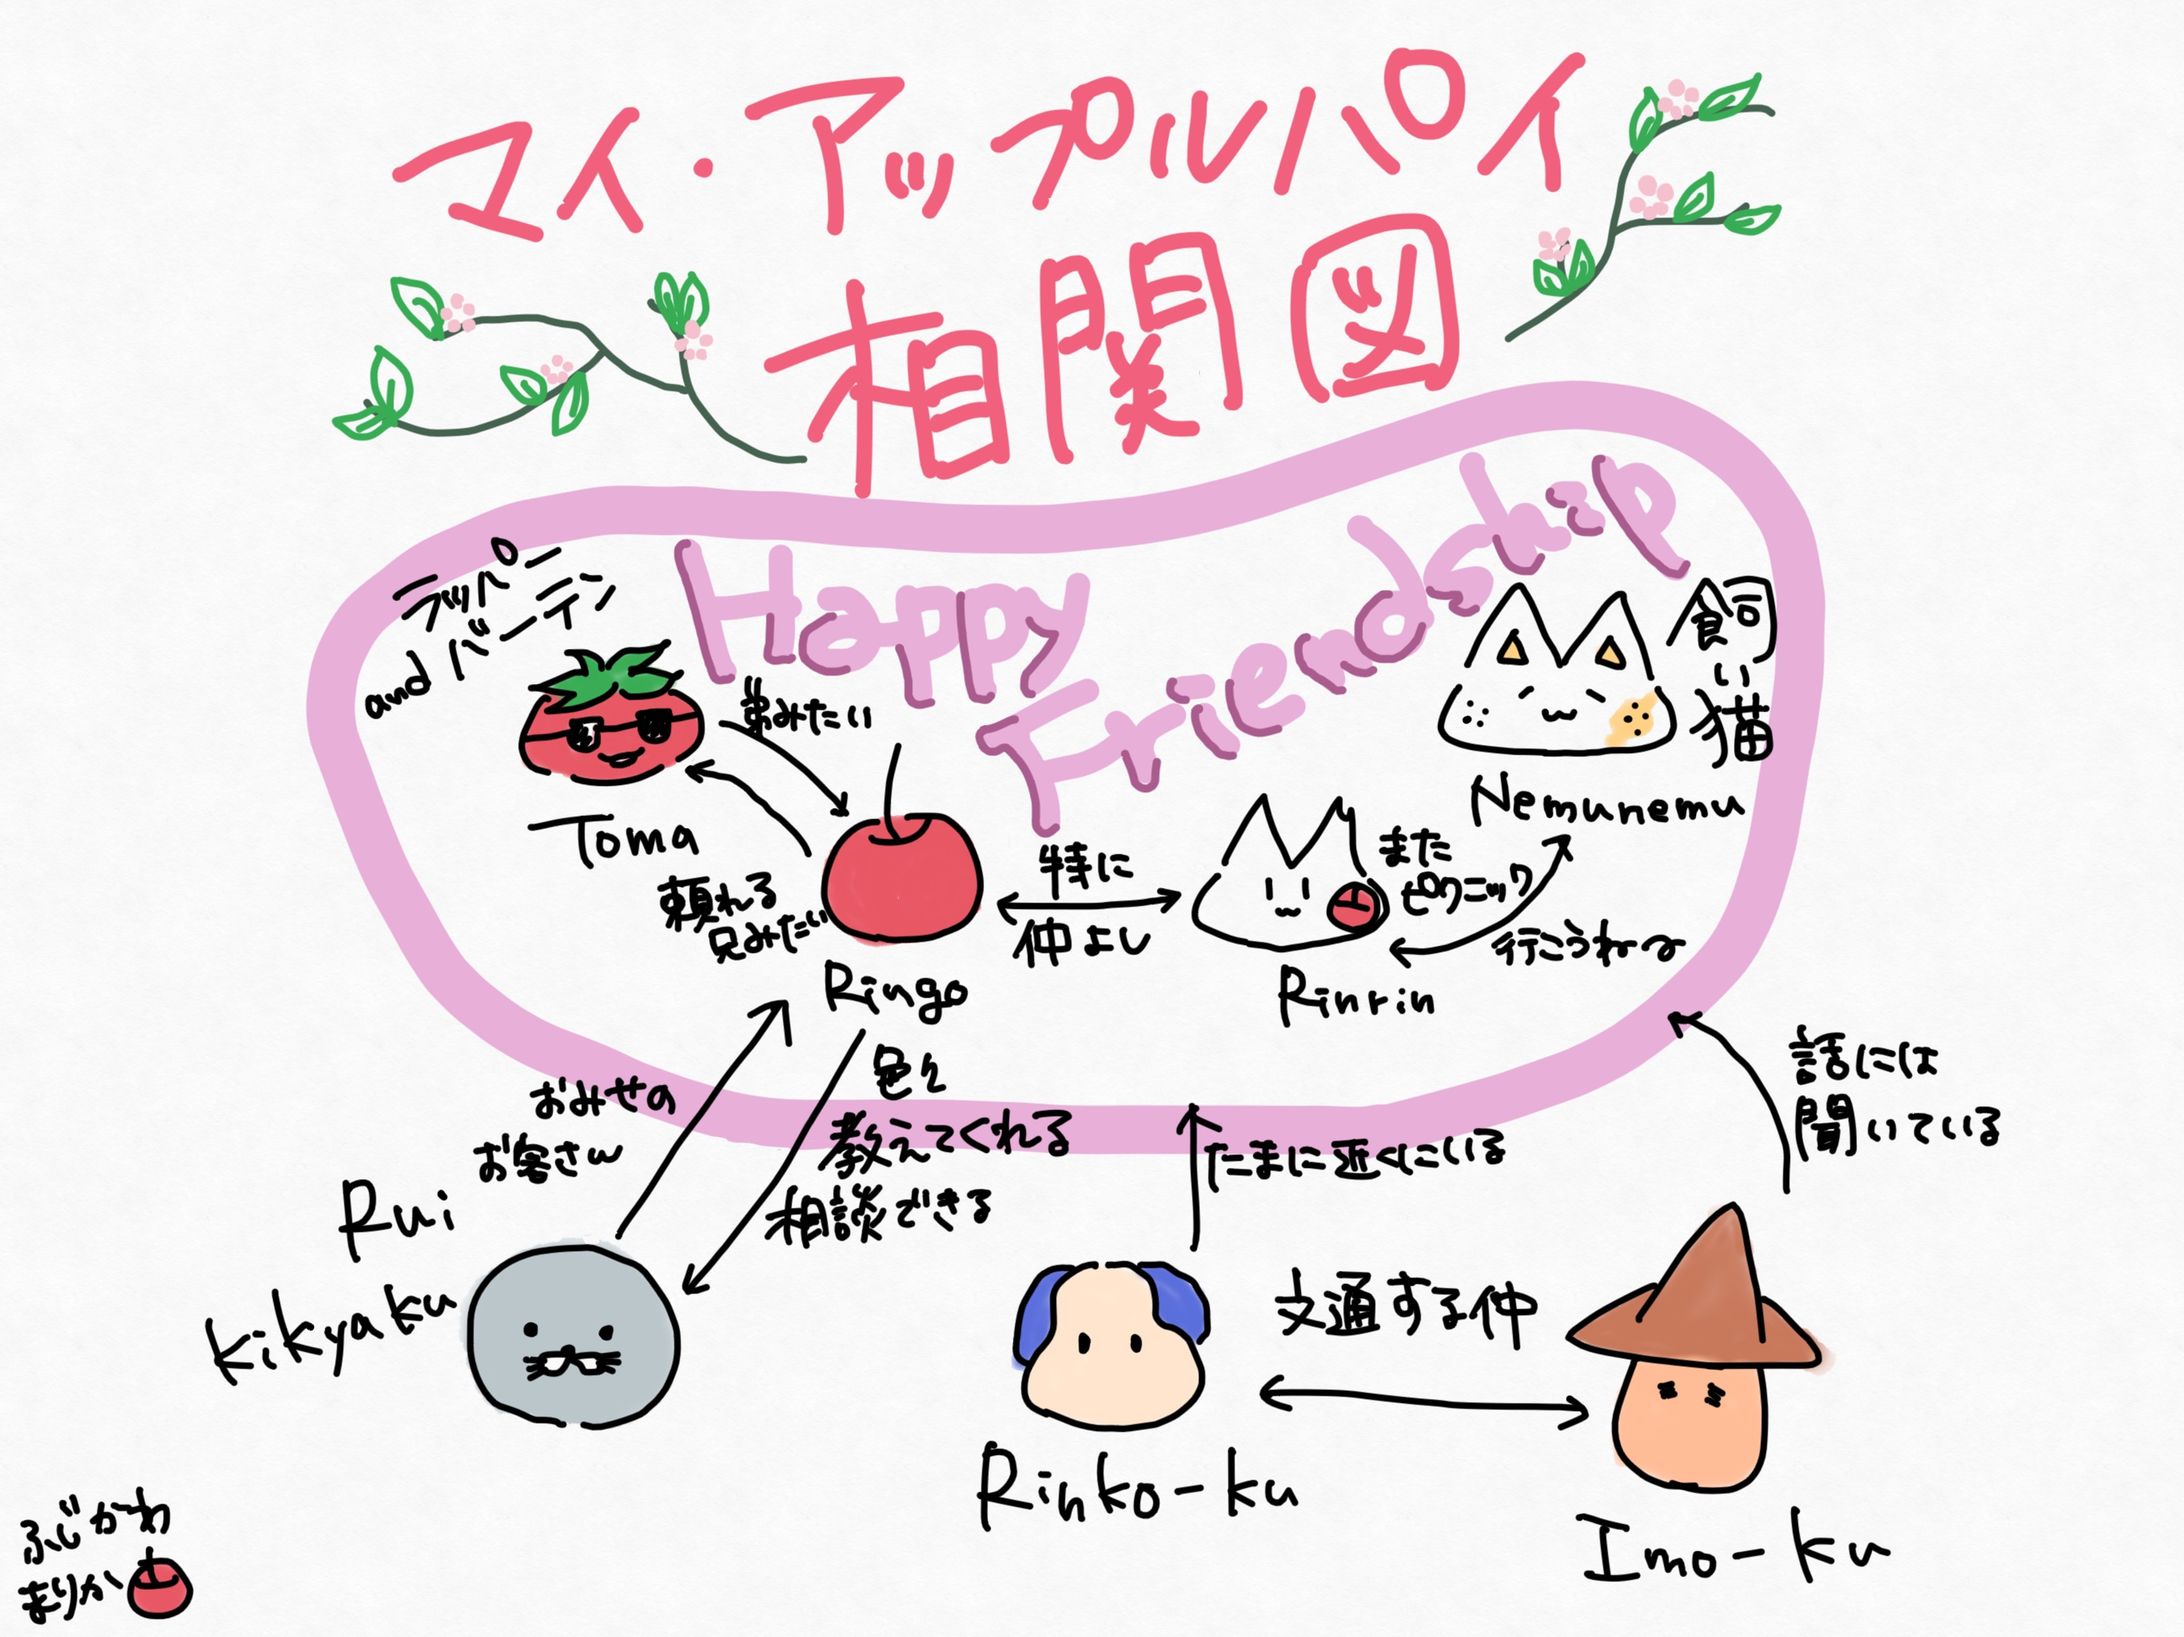 マイ・アップルパイ
相関図
Happy
Friendship
ラッパー
and バーテン
Toma
弟みたい
頼れる
兄みたい
Ringo
特に
仲よし
Rinrin
また
ピクニック
行こうね〜
Nemunemu
飼い猫
おみせの
お客さん
色々
教えてくれる
相談できる
たまに近くにいる
話には
聞いている
Rui
kikyaku
Rinko-ku
文通する仲
Imo-ku
ふじかわ
まりか